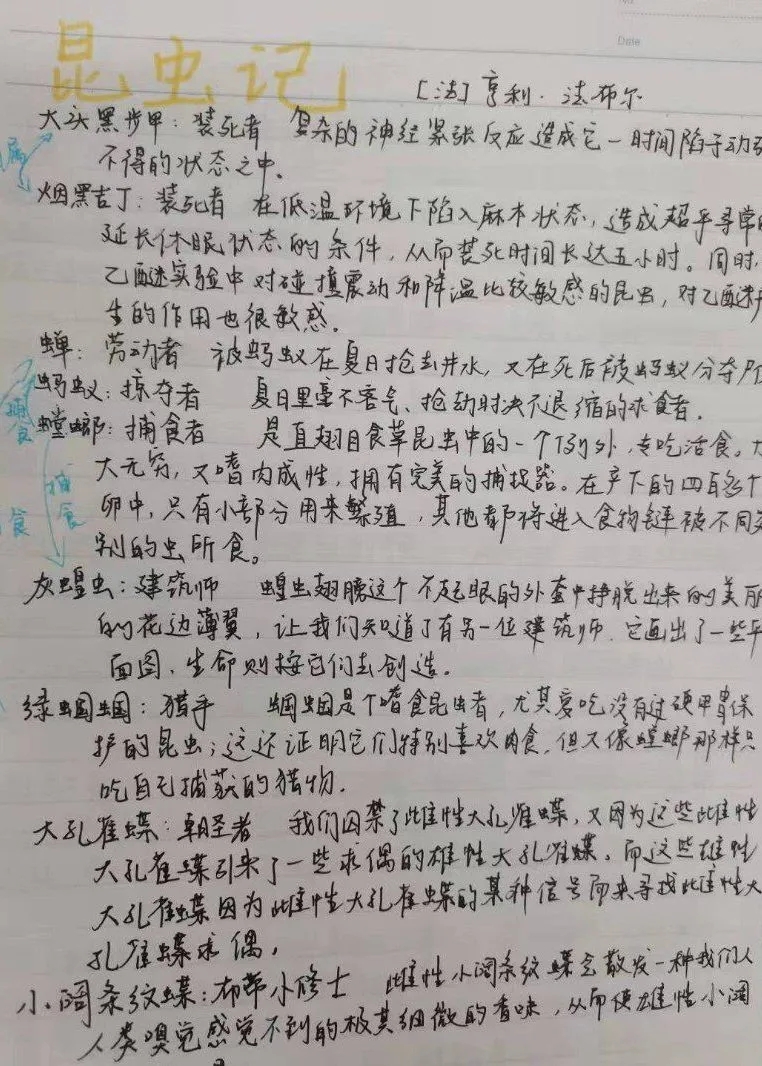 Date
昆虫记
[法] 亨利·法布尔
大头黑步甲：装死者 复杂的神经紧张反应造成它一时间陷于动弹
不得的状态之中。
烟黑吉丁：装死者 在低温环境下陷入麻木状态，造成超乎寻常的
延长休眠状态的条件，从而装死时间长达五小时。同时，
乙醚实验中对碰撞震动和降温比较敏感的昆虫，对乙醚
生的作用也很敏感。
蝉：劳动者 被蚂蚁在夏日抢去井水，又在死后被蚂蚁分夺尸
蚂蚁：掠夺者 夏日里毫不客气、抢劫时决不退缩的求食者。
捕食
螳螂：捕食者 是直翅目食草昆虫中的一个例外，专吃活食。力
大无穷，又嗜肉成性，拥有完美的捕捉器。在产下的四百多个
捕食
卵中，只有小部分用来繁殖，其他都将进入食物链被不同
食
别的虫所食。
灰蝗虫：建筑师 蝗虫翅膀这个不起眼的外套中挣脱出来的美丽
的花边薄翼，让我们知道了有另一位建筑师，它画出了一些平
面图，生命则按它们去创造。
绿蝈蝈：猎手 蝈蝈是个嗜食昆虫者，尤其爱吃没有过硬甲胄保
护的昆虫；这还证明它们特别喜欢肉食，但又像螳螂那样只
吃自己捕获的猎物。
大孔雀蝶：朝圣者 我们囚禁了雌性大孔雀蝶，又因为这些雌性
大孔雀蝶引来了一些求偶的雄性大孔雀蝶。而这些雄性
大孔雀蝶因为雌性大孔雀蝶的某种信号而来寻找雌性大
孔雀蝶求偶。
小阔条纹蝶：布带小修士 雌性小阔条纹蝶会散发一种我们人
人类嗅觉感觉不到的极其细微的香味，从而使雄性小阔